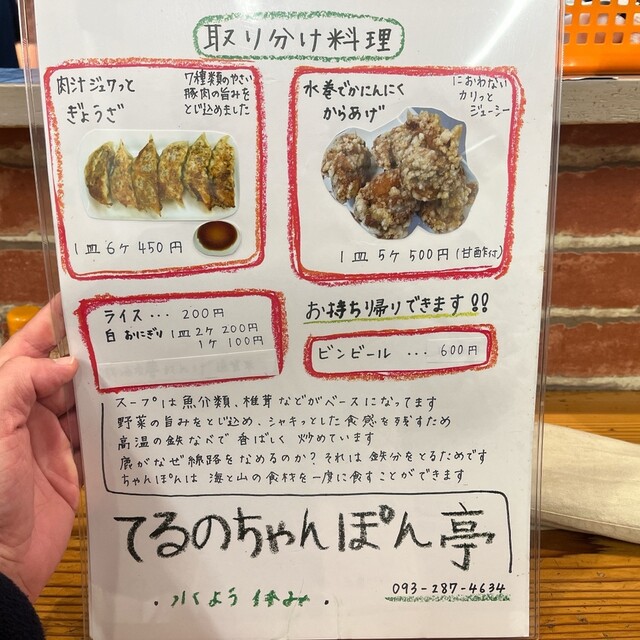 取り分け料理
肉汁ジュワっと
ぎょうざ
7種類のやさい
豚肉の旨みを
とじ込めました
1皿 6ケ 450円
水巻でかにんにく
からあげ
におわない
カリっと
ジューシー
1皿 5ケ 500円(甘酢付)
ライス・・・200円
白おにぎり 1皿2ケ 200円
1ケ 100円
お持ち帰りできます!!
ビンビール ・・・ 600円
スープは魚介類、椎茸などがベースになってます
野菜の旨みをとじ込め、シャキっとした食感を残すため
高温の鉄なべで香ばしく 炒めています
鹿がなぜ線路をなめるのか?それは鉄分をとるためです
ちゃんぽんは 海と山の食材を一度に食すことができます
てるのちゃんぽん亭
093-287-4634
・水くよう休み・